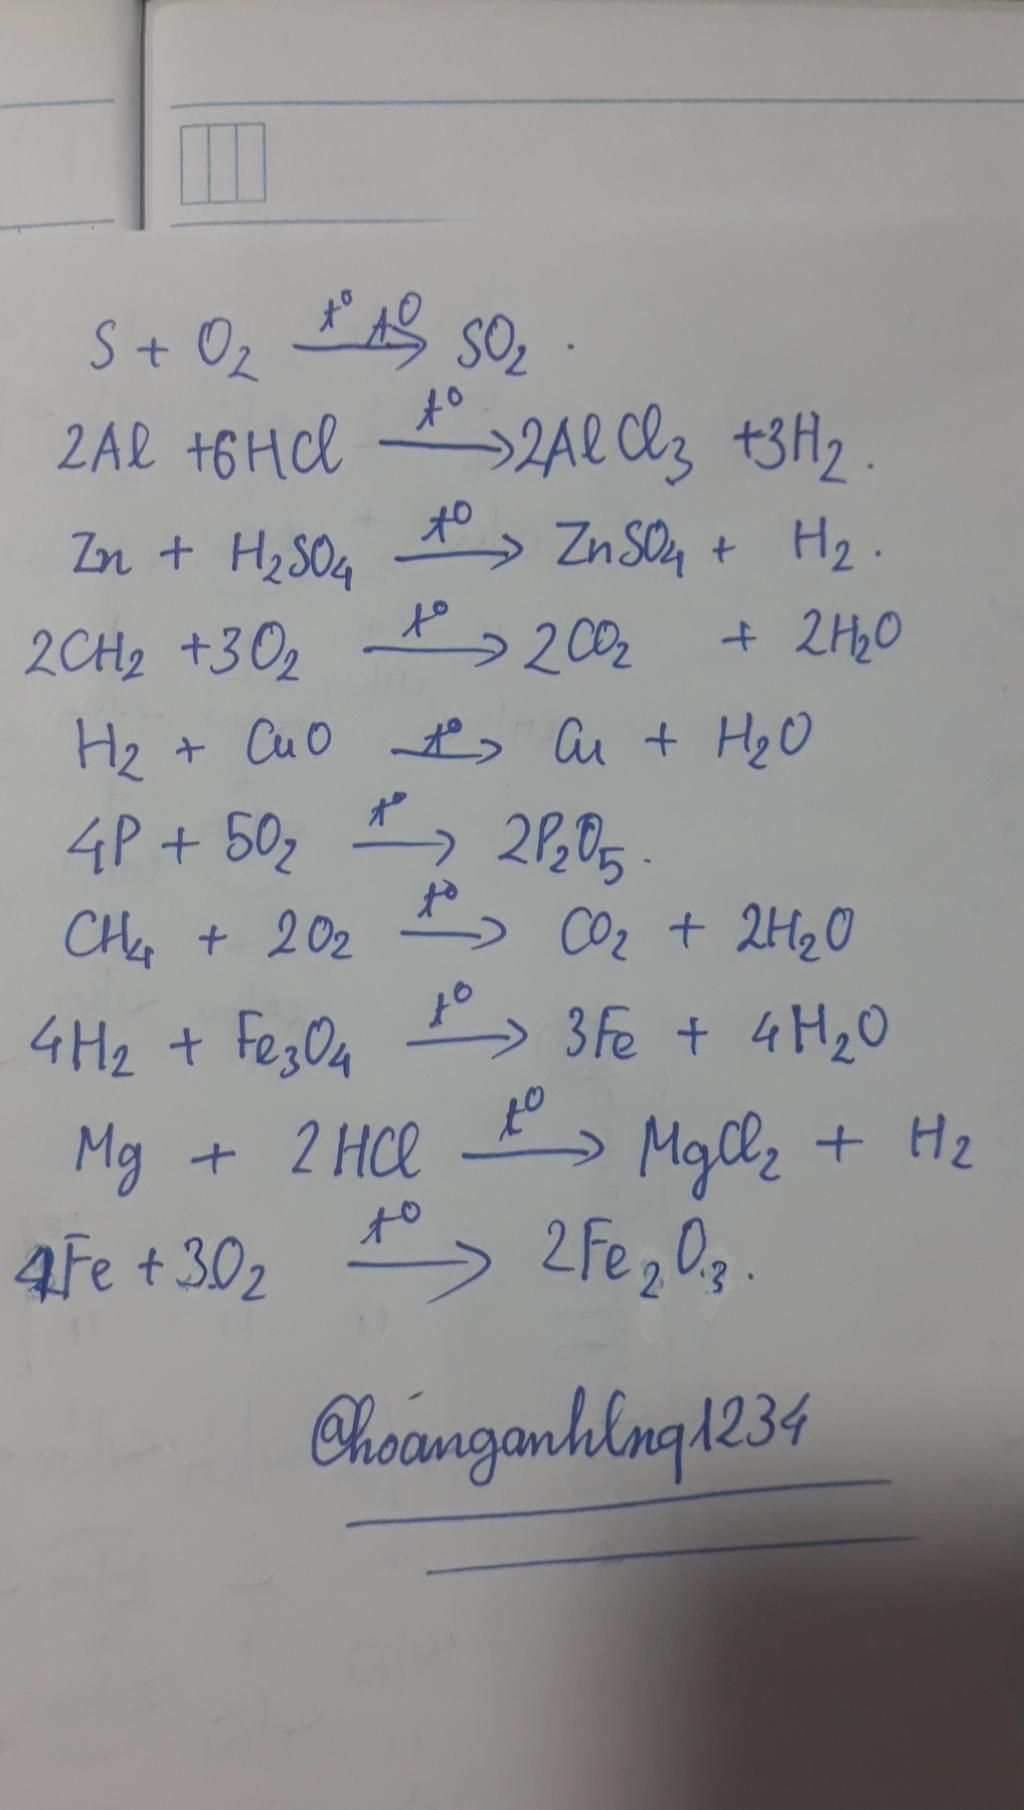 S + O₂ —t⁰ t⁰→ SO₂ .
2Al +6HCl —t⁰→ 2AlCl₃ +3H₂ .
Zn + H₂SO₄ —t⁰→ ZnSO₄ + H₂ .
2CH₂ +3O₂ —t⁰→ 2CO₂ + 2H₂O
H₂ + CuO —t⁰→ Cu + H₂O
4P + 5O₂ —t⁰→ 2P₂O₅ .
CH₄ + 2O₂ —t⁰→ CO₂ + 2H₂O
4H₂ + Fe₃O₄ —t⁰→ 3Fe + 4H₂O
Mg + 2HCl —t⁰→ MgCl₂ + H₂
4Fe +3O₂ —t⁰→ 2Fe₂O₃ .
@hoànganhlnq1234